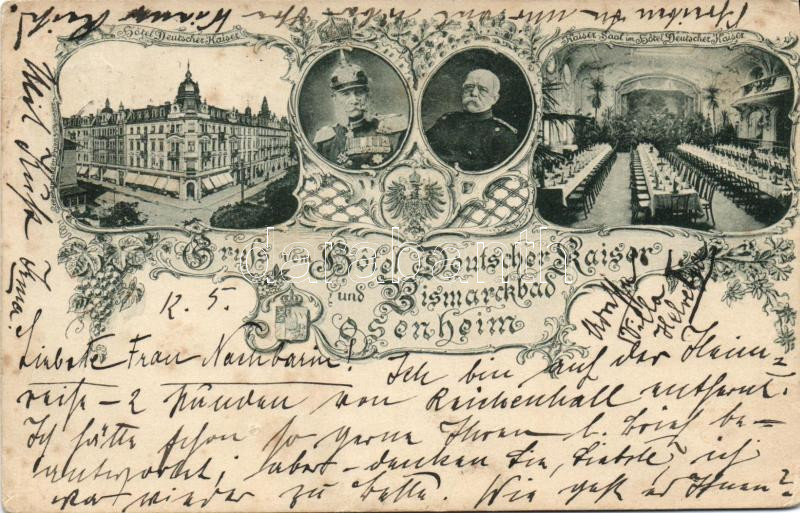 Hôtel Deutscher Kaiser
Kaiser-Saal im Hôtel Deutscher Kaiser
Gruß vom Hôtel Deutscher Kaiser
und Bismarckbad
Rosenheim
Villa
12. 5.
Liebste Frau Nachbarin! Ich bin auf der Heim-
reise – 2 Stunden von Reichenhall entfernt.
Ich hätte schon so gerne Ihren l. Brief be-
antwortet, aber – denken Sie, Liebste, ich
war wieder zu Bette. Wie geht es Ihnen?
Schreiben Sie mir
Mit Kuss Irma.